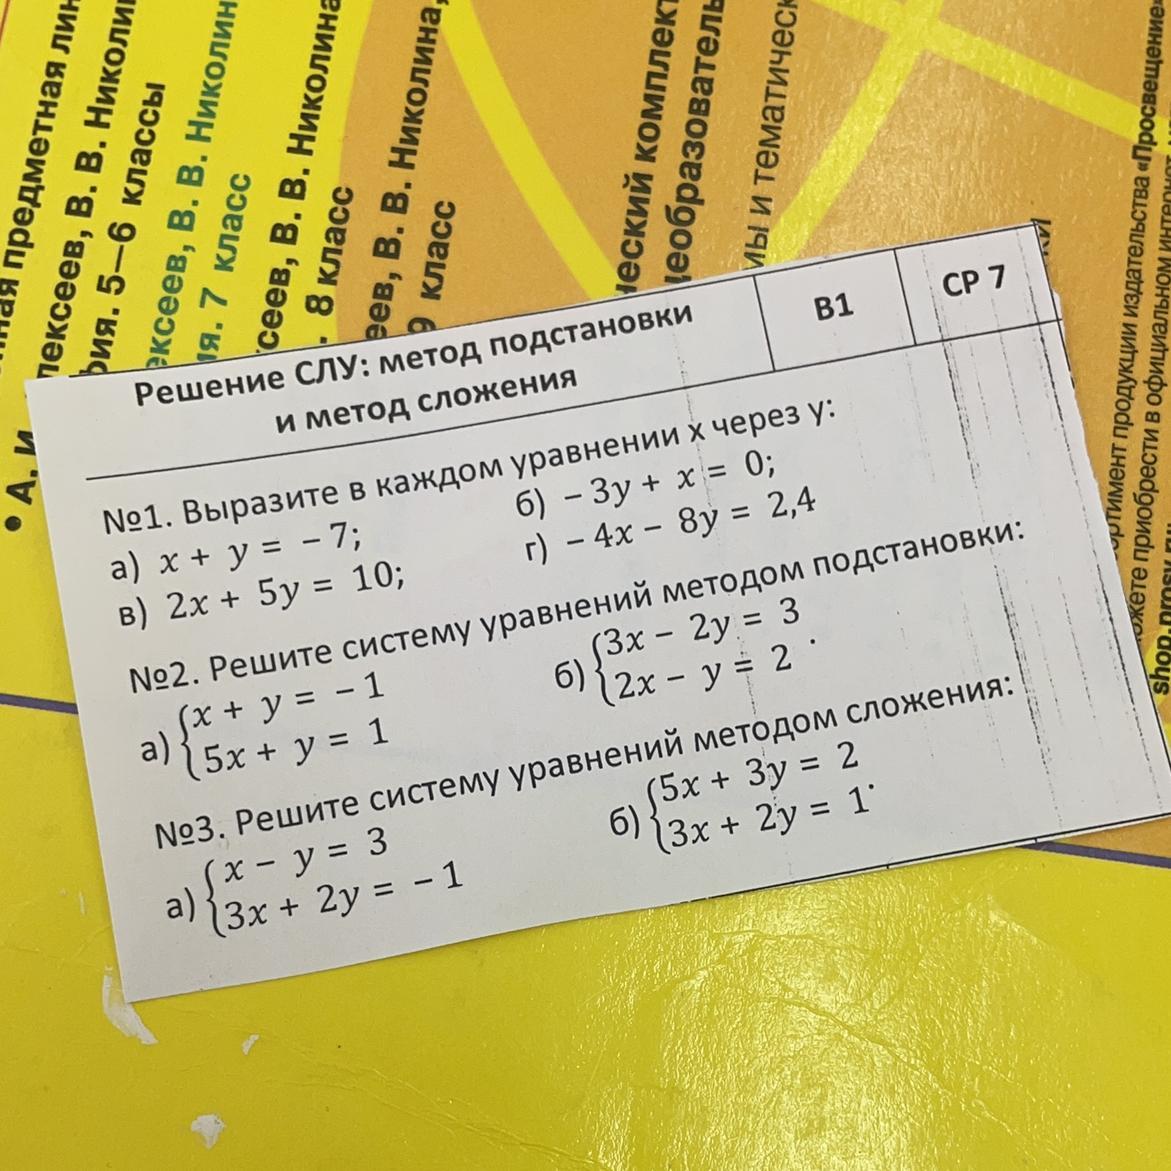 ная предметная лин
• А. И
лексеев, В. В. Николи
фия. 5—6 классы
ексеев, В. В. Николин
ия. 7 класс
сеев, В. В. Николина
. 8 класс
еев, В. В. Николина,
9 класс
ческий комплект
щеобразователь
мы и тематическ
ортимент продукции издательства «Просвещение»
ожете приобрести в официальном интерн
shop.prosv.ru
Решение СЛУ: метод подстановки
и метод сложения
В1
СР 7
№1. Выразите в каждом уравнении х через у:
а) x + y = −7;
б) −3y + x = 0;
в) 2x + 5y = 10;
г) −4x − 8y = 2,4
№2. Решите систему уравнений методом подстановки:
а) {x + y = −1
5x + y = 1
б) {3x − 2y = 3
2x − y = 2 .
№3. Решите систему уравнений методом сложения:
а) {x − y = 3
3x + 2y = −1
б) {5x + 3y = 2
3x + 2y = 1 .